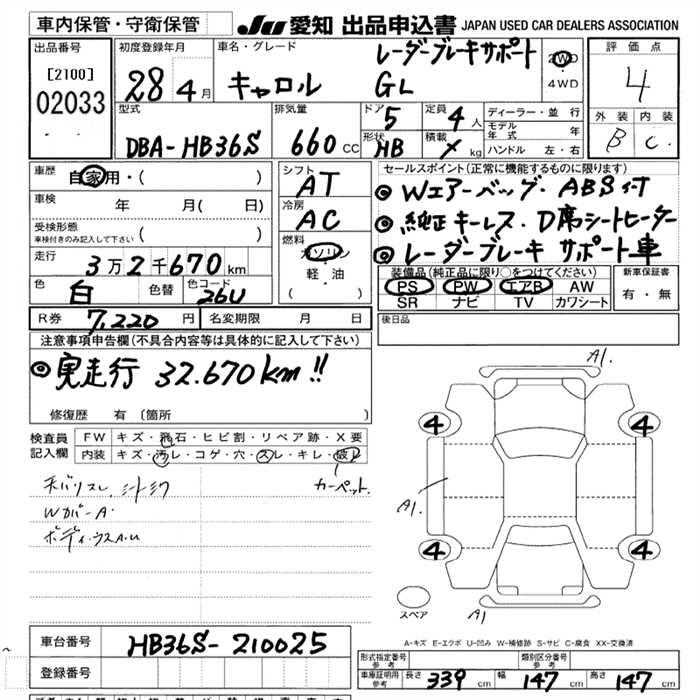 車内保管・守衛保管
JU 愛知 出品申込書 JAPAN USED CAR DEALERS ASSOCIATION
出品番号
[2100]
02033
初度登録年月
28 4月
車名・グレード
キャロル
レーダーブレーキサポート
GL
2WD
・
4WD
評価点
4
外装 内装
B C
型式
DBA-HB36S
排気量
660 CC
ドア
5
形状
HB
定員
4人
積載
✗ kg
ディーラー・並行
モデル年式 年
ハンドル 左・右
車歴
自家用・( )
車検
年 月( 日)
受検形態
車検付きのみ記入して下さい ( )
走行
3万2千670km
色
白
色替
色コード
26U
シフト
AT
冷房
AC
燃料
ガソリン
軽・油
( )
セールスポイント(正常に機能するものに限ります)
◎Wエアーバッグ・ABS付
◎純正キーレス・D席シートヒーター
◎レーダーブレーキサポート車
装備品(純正品に限り○をつけてください)
PS PW エアB AW
SR ナビ TV カワシート
新車保証書
有・無
R券 7,220円 名変期限 月 日
後日品
注意事項申告欄(不具合内容等は具体的に記入して下さい)
◎実走行 32.670km!!
修復歴 有(箇所 )
検査員記入欄
FW キズ・飛石・ヒビ割・リペア跡・X要
内装 キズ・汚レ・コゲ・穴・スレ・キレ・破レ
カーペット
Wカバ-A・
A1.
4 4
A1.
4 4
スペア
A1
A-キズ E-エクボ U-凹み W-補修跡 S-サビ C-腐食 XX-交換済
車台番号 HB36S-210025
登録番号
形式指定番号 参考
類別区分番号 参考
車庫証明用 参考 長さ 339 cm 幅 147 cm 高さ 147 cm